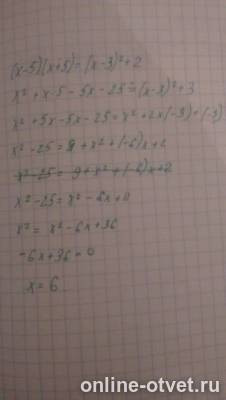 (x-5)(x+5)=(x-3)²+2
x²+x·5-5x-25=(x-3)²+3
x²+5x-5x-25=x²+2x(-3)+(-3)
x²-25=9+x²+(-6)x+2
x²-25=9+x²+(-6)x+2
x²-25=x²-6x+11
x²=x²-6x+36
-6x+36=0
x=6
online-otvet.ru